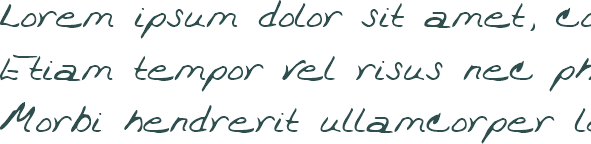 Lorem ipsum dolor sit amet, co
Etiam tempor vel risus nec ph
Morbi hendrerit ullamcorper la